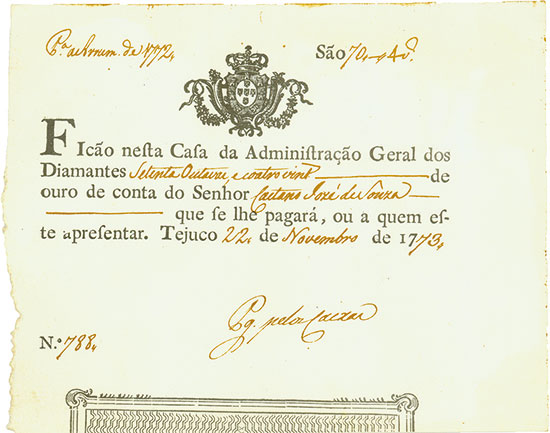 Pª a Arrum. de 1772, São 70,,4 8.ª
FIcão nesta Casa da Administração Geral dos
Diamantes Setenta Outavas, e coatro vint de
ouro de conta do Senhor Caetano Jozé de Souza
que se lhe pagará, ou a quem es-
te apresentar. Tejuco 22, de Novembro de 1773,
Pg. pelos Caixas
N.º 788,